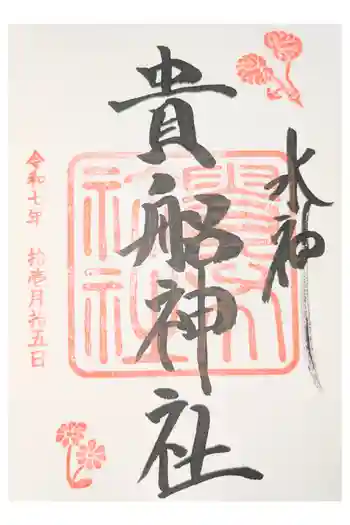 水神
貴船神社
令和七年 拾壱月初五日